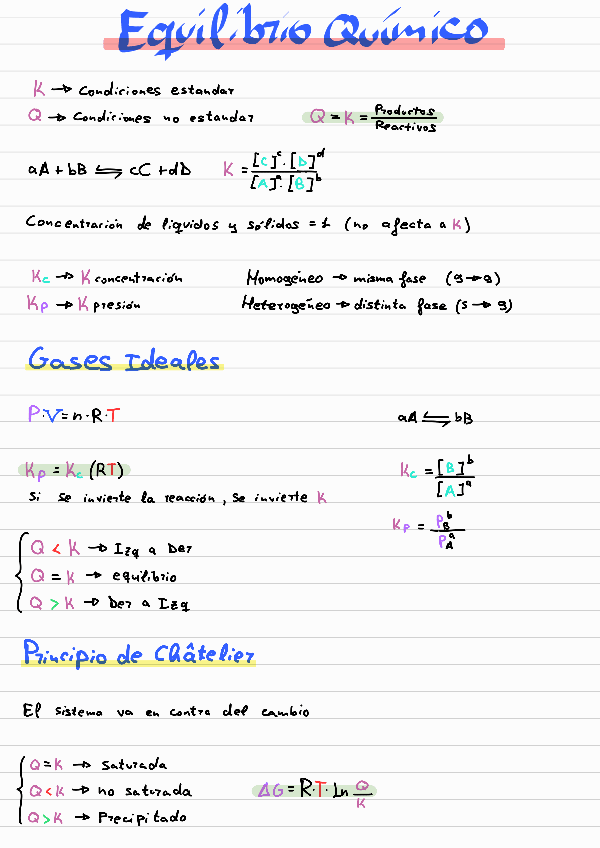 Equilibrio Químico
K → Condiciones estandar
Q → Condiciones no estandar
Q = K = Productos / Reactivos
aA + bB ⇌ cC + dD
K = [C]^c · [D]^d / [A]^a · [B]^b
Concentración de líquidos y sólidos = 1 (no afecta a K)
Kc → K concentración
Homogéneo → misma fase (g → g)
Kp → K presión
Heterogéneo → distinta fase (s → g)
Gases Ideales
P·V = n·R·T
aA ⇌ bB
Kp = Kc (RT)
Kc = [B]^b / [A]^a
Si se invierte la reacción, se invierte K
Kp = P_B^b / P_A^a
Q < K → Izq a Der
Q = K → equilibrio
Q > K → Der a Izq
Principio de Châtelier
El sistema va en contra del cambio
Q = K → saturada
Q < K → no saturada
ΔG = R·T· Ln Q/K
Q > K → Precipitado